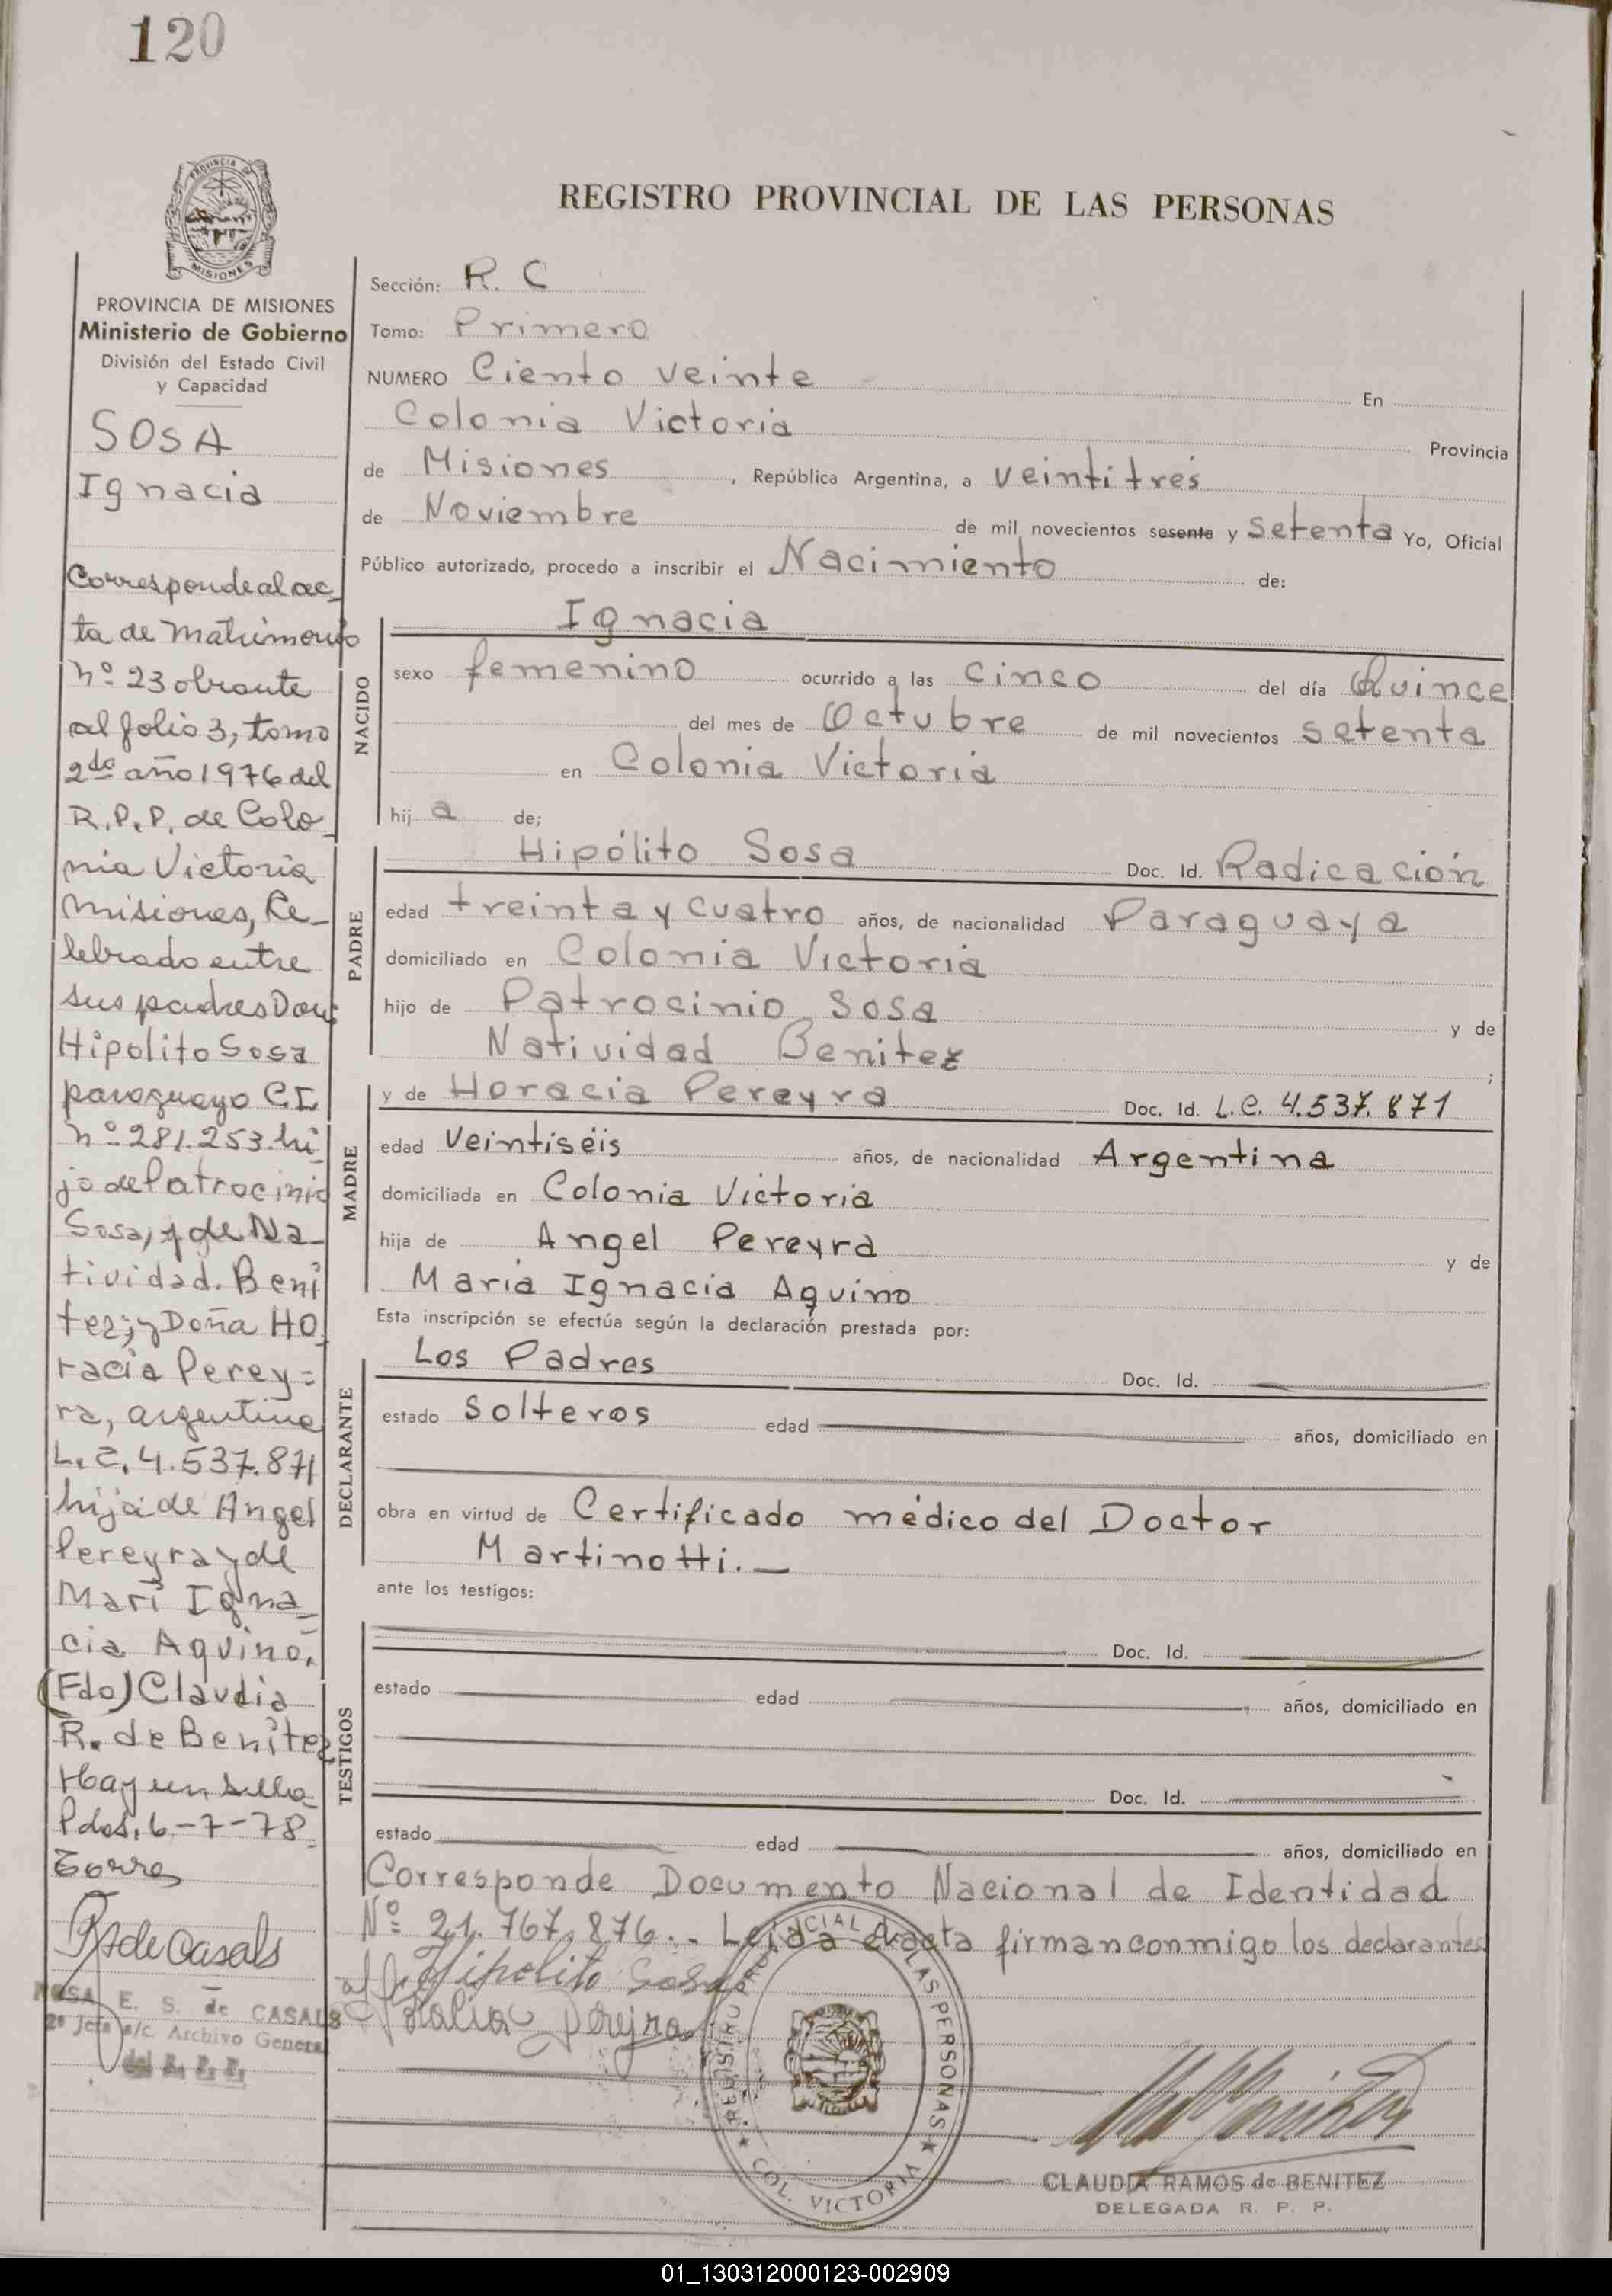 120
PROVINCIA DE MISIONES
PROVINCIA DE MISIONES
Ministerio de Gobierno
División del Estado Civil
y Capacidad
SOSA
Ignacia
Corresponde al ac-
ta de Matrimonio
nº 23 obrante
al folio 3, tomo
2do año 1976 del
R.P.P. de Colo-
nia Victoria
Misiones, Ce-
lebrado entre
sus padres Don:
Hipolito Sosa
paraguayo C.I.
nº 281.253. hi-
jo de Patrocinio
Sosa, y de Na-
tividad. Beni
tez; y Doña HO-
racia Perey=
ra, argentina
L.C. 4.537.871
hija de Angel
Pereyra y de
Mari Igna-
cia Aquino.
(Fdo) Claudia
R. de Benitez
Hay un sello
Pdas, 6-7-78
Torres
R de Casals
ROSA E. S. de CASALS
2º Jefa a/c. Archivo General
del R. P. P.
REGISTRO PROVINCIAL DE LAS PERSONAS
Sección: R. C
Tomo: Primero
NUMERO Ciento veinte En
Colonia Victoria Provincia
de Misiones, República Argentina, a veintitrés
de Noviembre de mil novecientos sesenta y Setenta Yo, Oficial
Público autorizado, procedo a inscribir el Nacimiento de:
NACIDO
Ignacia
sexo femenino ocurrido a las cinco del día Quince
del mes de Octubre de mil novecientos setenta
en Colonia Victoria
hij a de;
PADRE
Hipólito Sosa Doc. Id. Radicación
edad treinta y cuatro años, de nacionalidad Paraguaya
domiciliado en Colonia Victoria
hijo de Patrocinio Sosa y de
Natividad Benitez ;
MADRE
y de Horacia Pereyra Doc. Id. L.C. 4.537.871
edad Veintiséis años, de nacionalidad Argentina
domiciliada en Colonia Victoria
hija de Angel Pereyra y de
Maria Ignacia Aquino
Esta inscripción se efectúa según la declaración prestada por:
DECLARANTE
Los Padres Doc. Id.
estado Solteros edad años, domiciliado en
obra en virtud de Certificado médico del Doctor
Martinotti.—
ante los testigos:
TESTIGOS
Doc. Id.
estado edad años, domiciliado en
Doc. Id.
estado edad años, domiciliado en
Corresponde Documento Nacional de Identidad
Nº 21.767.876.- Leída el acta firman conmigo los declarantes.
Hipolito Sosa
Perejra
REGISTRO PROVINCIAL DE LAS PERSONAS ★ COL. VICTORIA ★
CLAUDIA RAMOS de BENITEZ
DELEGADA R. P. P.
01_130312000123-002909